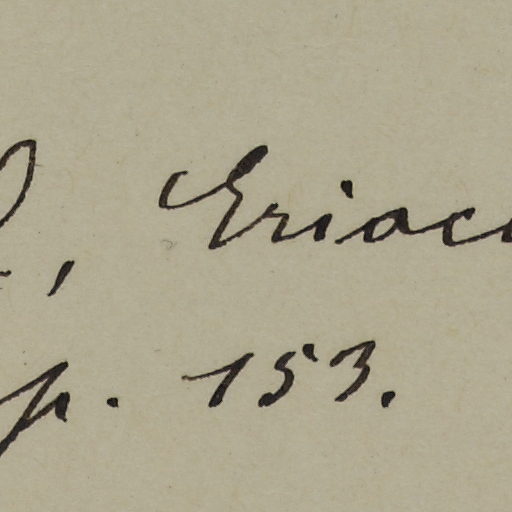 , Erioc
p. 153.